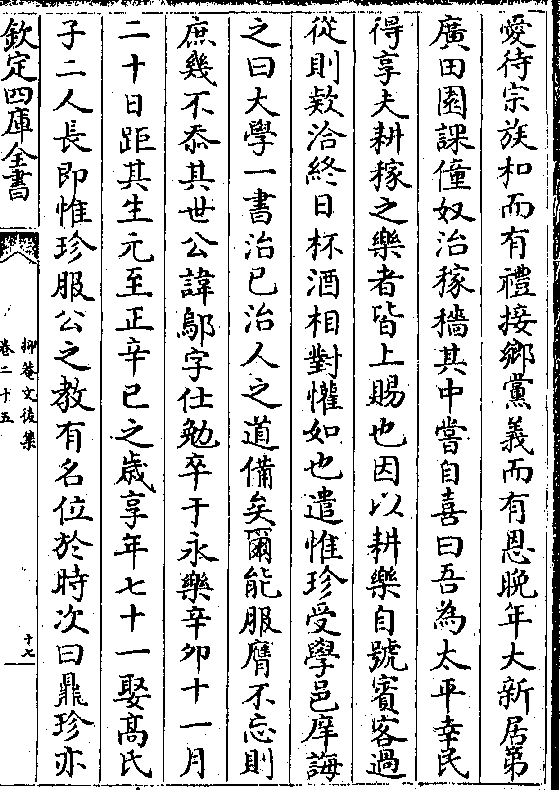 愛待宗族和而有禮接鄉黨義而有恩晚年大新居第
廣田園課僮奴治稼穡其中嘗自喜曰吾為太平幸民
得享夫耕稼之樂者皆上賜也因以耕樂自號賓客過
從則欵洽終日杯酒相對懽如也遣惟珍受學邑庠誨
之曰大學一書治已治人之道備矣爾能服膺不忘則
庶幾不忝其世公諱鄔字仕勉卒于永樂辛卯十一月
二十日距其生元至正辛巳之歲享年七十一娶髙氏
子二人長即惟珍服公之教有名位於時次曰鼎珍亦
欽定四庫全書
抑菴文後集
卷二十五
十七